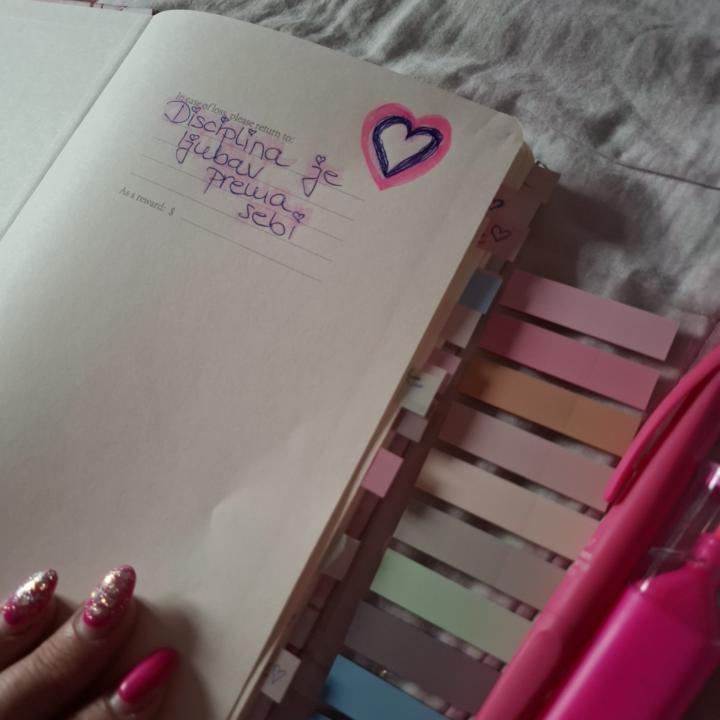 In case of loss, please return to:
Disciplina je
ljubav
prema
sebi
As a reward: $